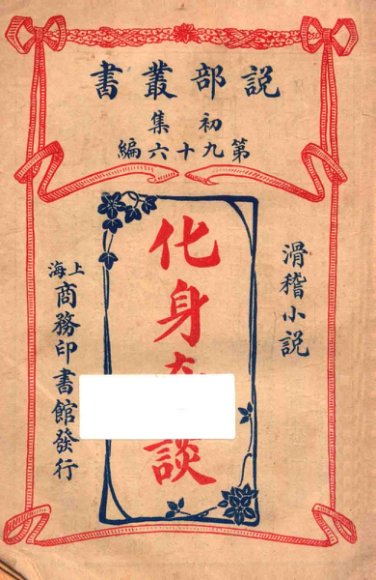 説部叢書
初集
第九十六編
滑稽小説
化身
談
上海
商務印書館發行